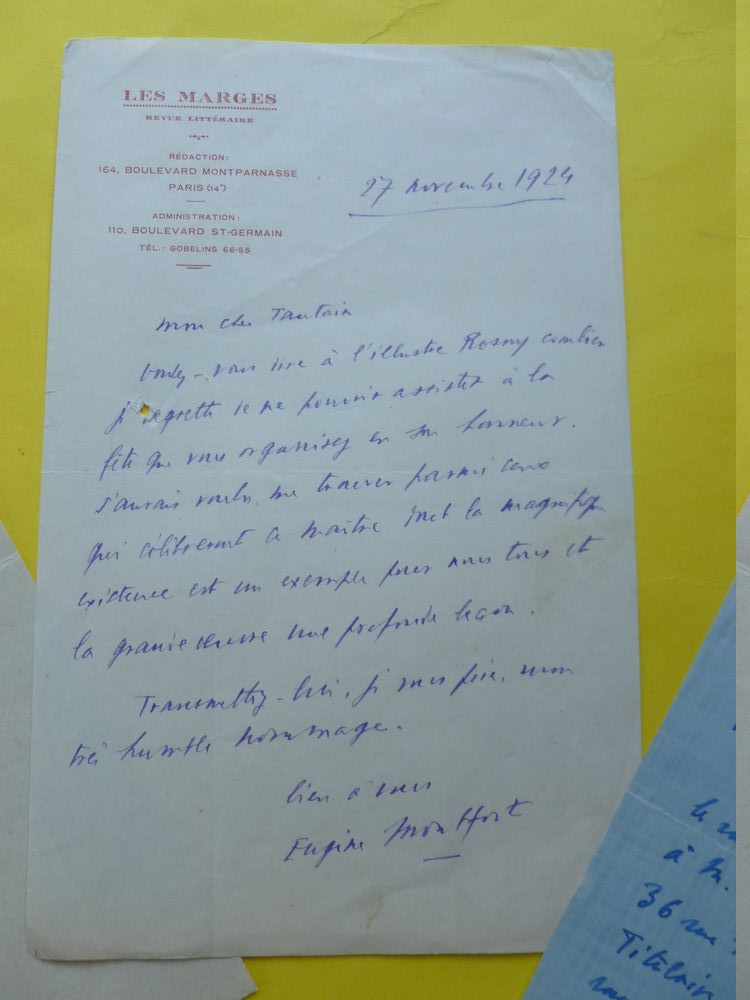 LES MARGES
REVUE LITTÉRAIRE
RÉDACTION :
164, BOULEVARD MONTPARNASSE
PARIS (14e)
ADMINISTRATION :
110, BOULEVARD ST-GERMAIN
TÉL. : GOBELINS 66-55
27 novembre 1924
Mon cher Tautain
Voulez-vous dire à l'illustre Rosny combien
je regrette de ne pouvoir assister à la
fête que vous organisez en son honneur.
J'aurais voulu me trouver parmi ceux
qui célèbreront ce maître dont la magnifique
existence est un exemple pour nous tous et
la grande œuvre une profonde leçon.
Transmettez-lui, je vous prie, mon
très humble hommage.
bien à vous
Eugène Montfort
à M.
36 rue
Titulaire